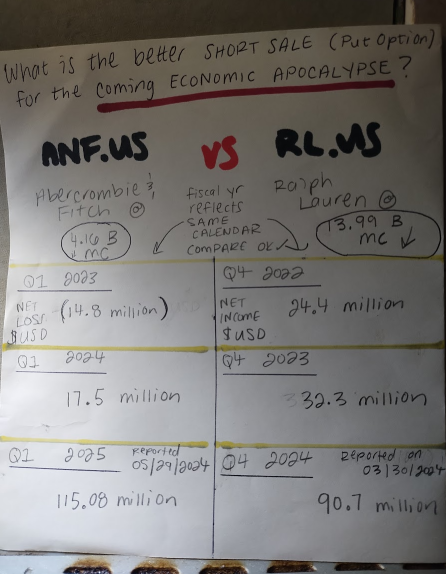 What is the better SHORT SALE (Put Option)
for the coming ECONOMIC APOCALYPSE?
ANF.US VS RL.US
Abercrombie &
Fitch @
4.16 B
↓ MC
fiscal yr
reflects
SAME
CALENDAR
COMPARE OK
Ralph
Lauren @
13.99 B
MC ↓
Q1 2023
NET
LOSS
$USD
(14.8 million)
Q4 2022
NET
INCOME
$USD
24.4 million
Q1 2024
17.5 million
Q4 2023
32.3 million
Q1 2025
Reported
05/29/2024
115.08 million
Q4 2024
Reported on
03/30/2024
90.7 million